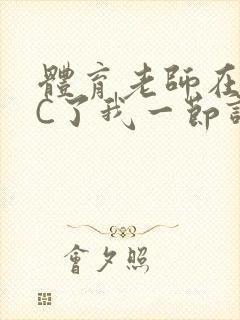 體育老師在
C了我一節
會夕照